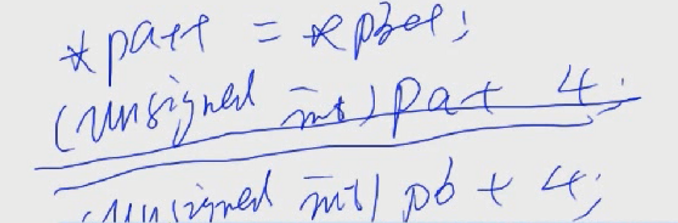 *pa++ = *pb++;
(unsigned int) pa + 4;
(unsigned int) pb + 4;